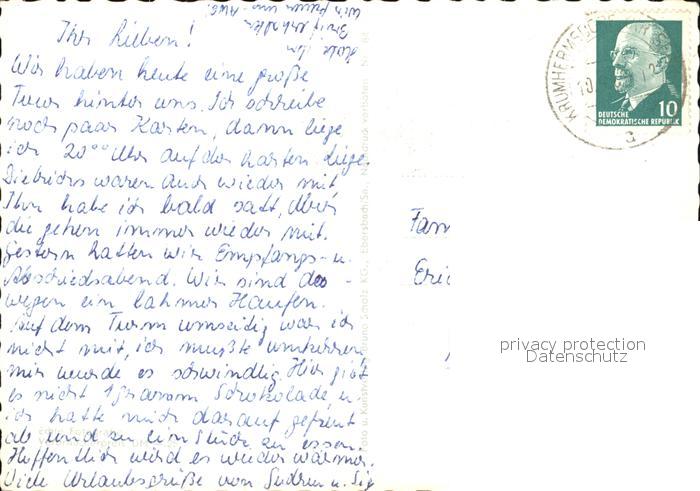 Ihr Lieben!
Wir haben heute eine große
Tour hinter uns. Ich schreibe
noch paar Karten, dann liege
ich 20⁰⁰ Uhr auf der harten Liege.
Dietrichs waren auch wieder mit,
Ihn habe ich bald satt, Aber
die gehen immer wieder mit.
Gestern hatten wir Empfangs- u.
Abschiedsabend. Wir sind des-
wegen ein lahmer Haufen.
Auf dem Turm umseitig war ich
nicht mit, ich mußte umkehren,
mir wurde es schwindlig. Hier gibt
es nicht 1 gramm Schokolade, u.
ich hatte mich darauf gefreut
ab und zu ein Stück zu essen.
Hoffentlich wird es wieder wärmer.
Viele Urlaubsgrüße von Gudrun u. Sig
Heute Ihren
Brief erhalten
Wir freuen uns
Bruno Scholz KG., Ebersbach/Sa.
KRUMHERMSDORF
10
a
10
DEUTSCHE
DEMOKRATISCHE REPUBLIK
Fam
Eric
privacy protection
Datenschutz